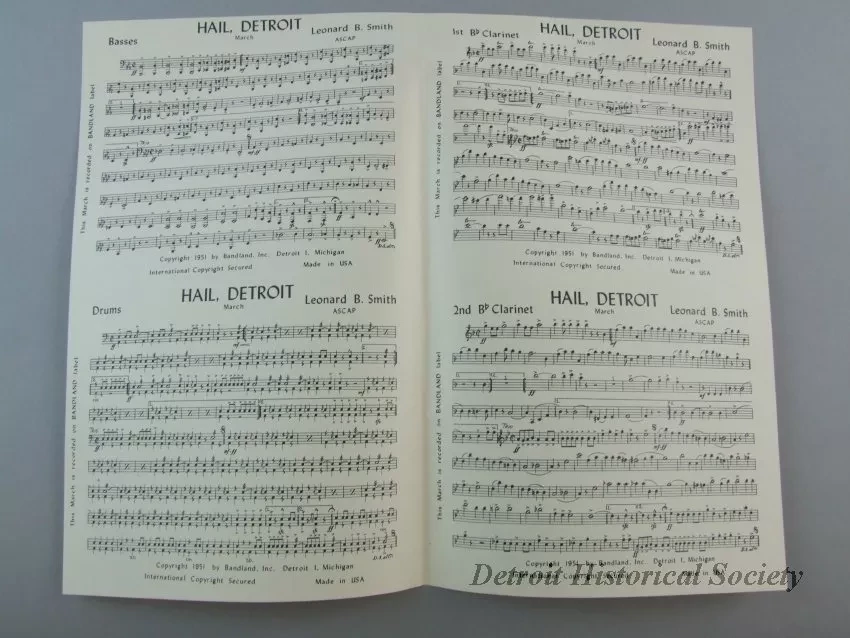 Basses
HAIL, DETROIT
March
Leonard B. Smith
ASCAP
This March is recorded on BANDLAND label
ff
Copyright 1951 by Bandland, Inc. Detroit 1, Michigan
International Copyright Secured Made in USA
1st B♭ Clarinet
HAIL, DETROIT
March
Leonard B. Smith
ASCAP
This March is recorded on BANDLAND label
ff
Trio
Copyright 1951 by Bandland, Inc. Detroit 1, Michigan
International Copyright Secured Made in USA
Drums
HAIL, DETROIT
March
Leonard B. Smith
ASCAP
This March is recorded on BANDLAND label
ff
Trio
Copyright 1951 by Bandland, Inc. Detroit 1, Michigan
International Copyright Secured Made in USA
2nd B♭ Clarinet
HAIL, DETROIT
March
Leonard B. Smith
ASCAP
This March is recorded on BANDLAND label
ff
Trio
Copyright 1951 by Bandland, Inc. Detroit 1, Michigan
International Copyright Secured Made in USA
Detroit Historical Society